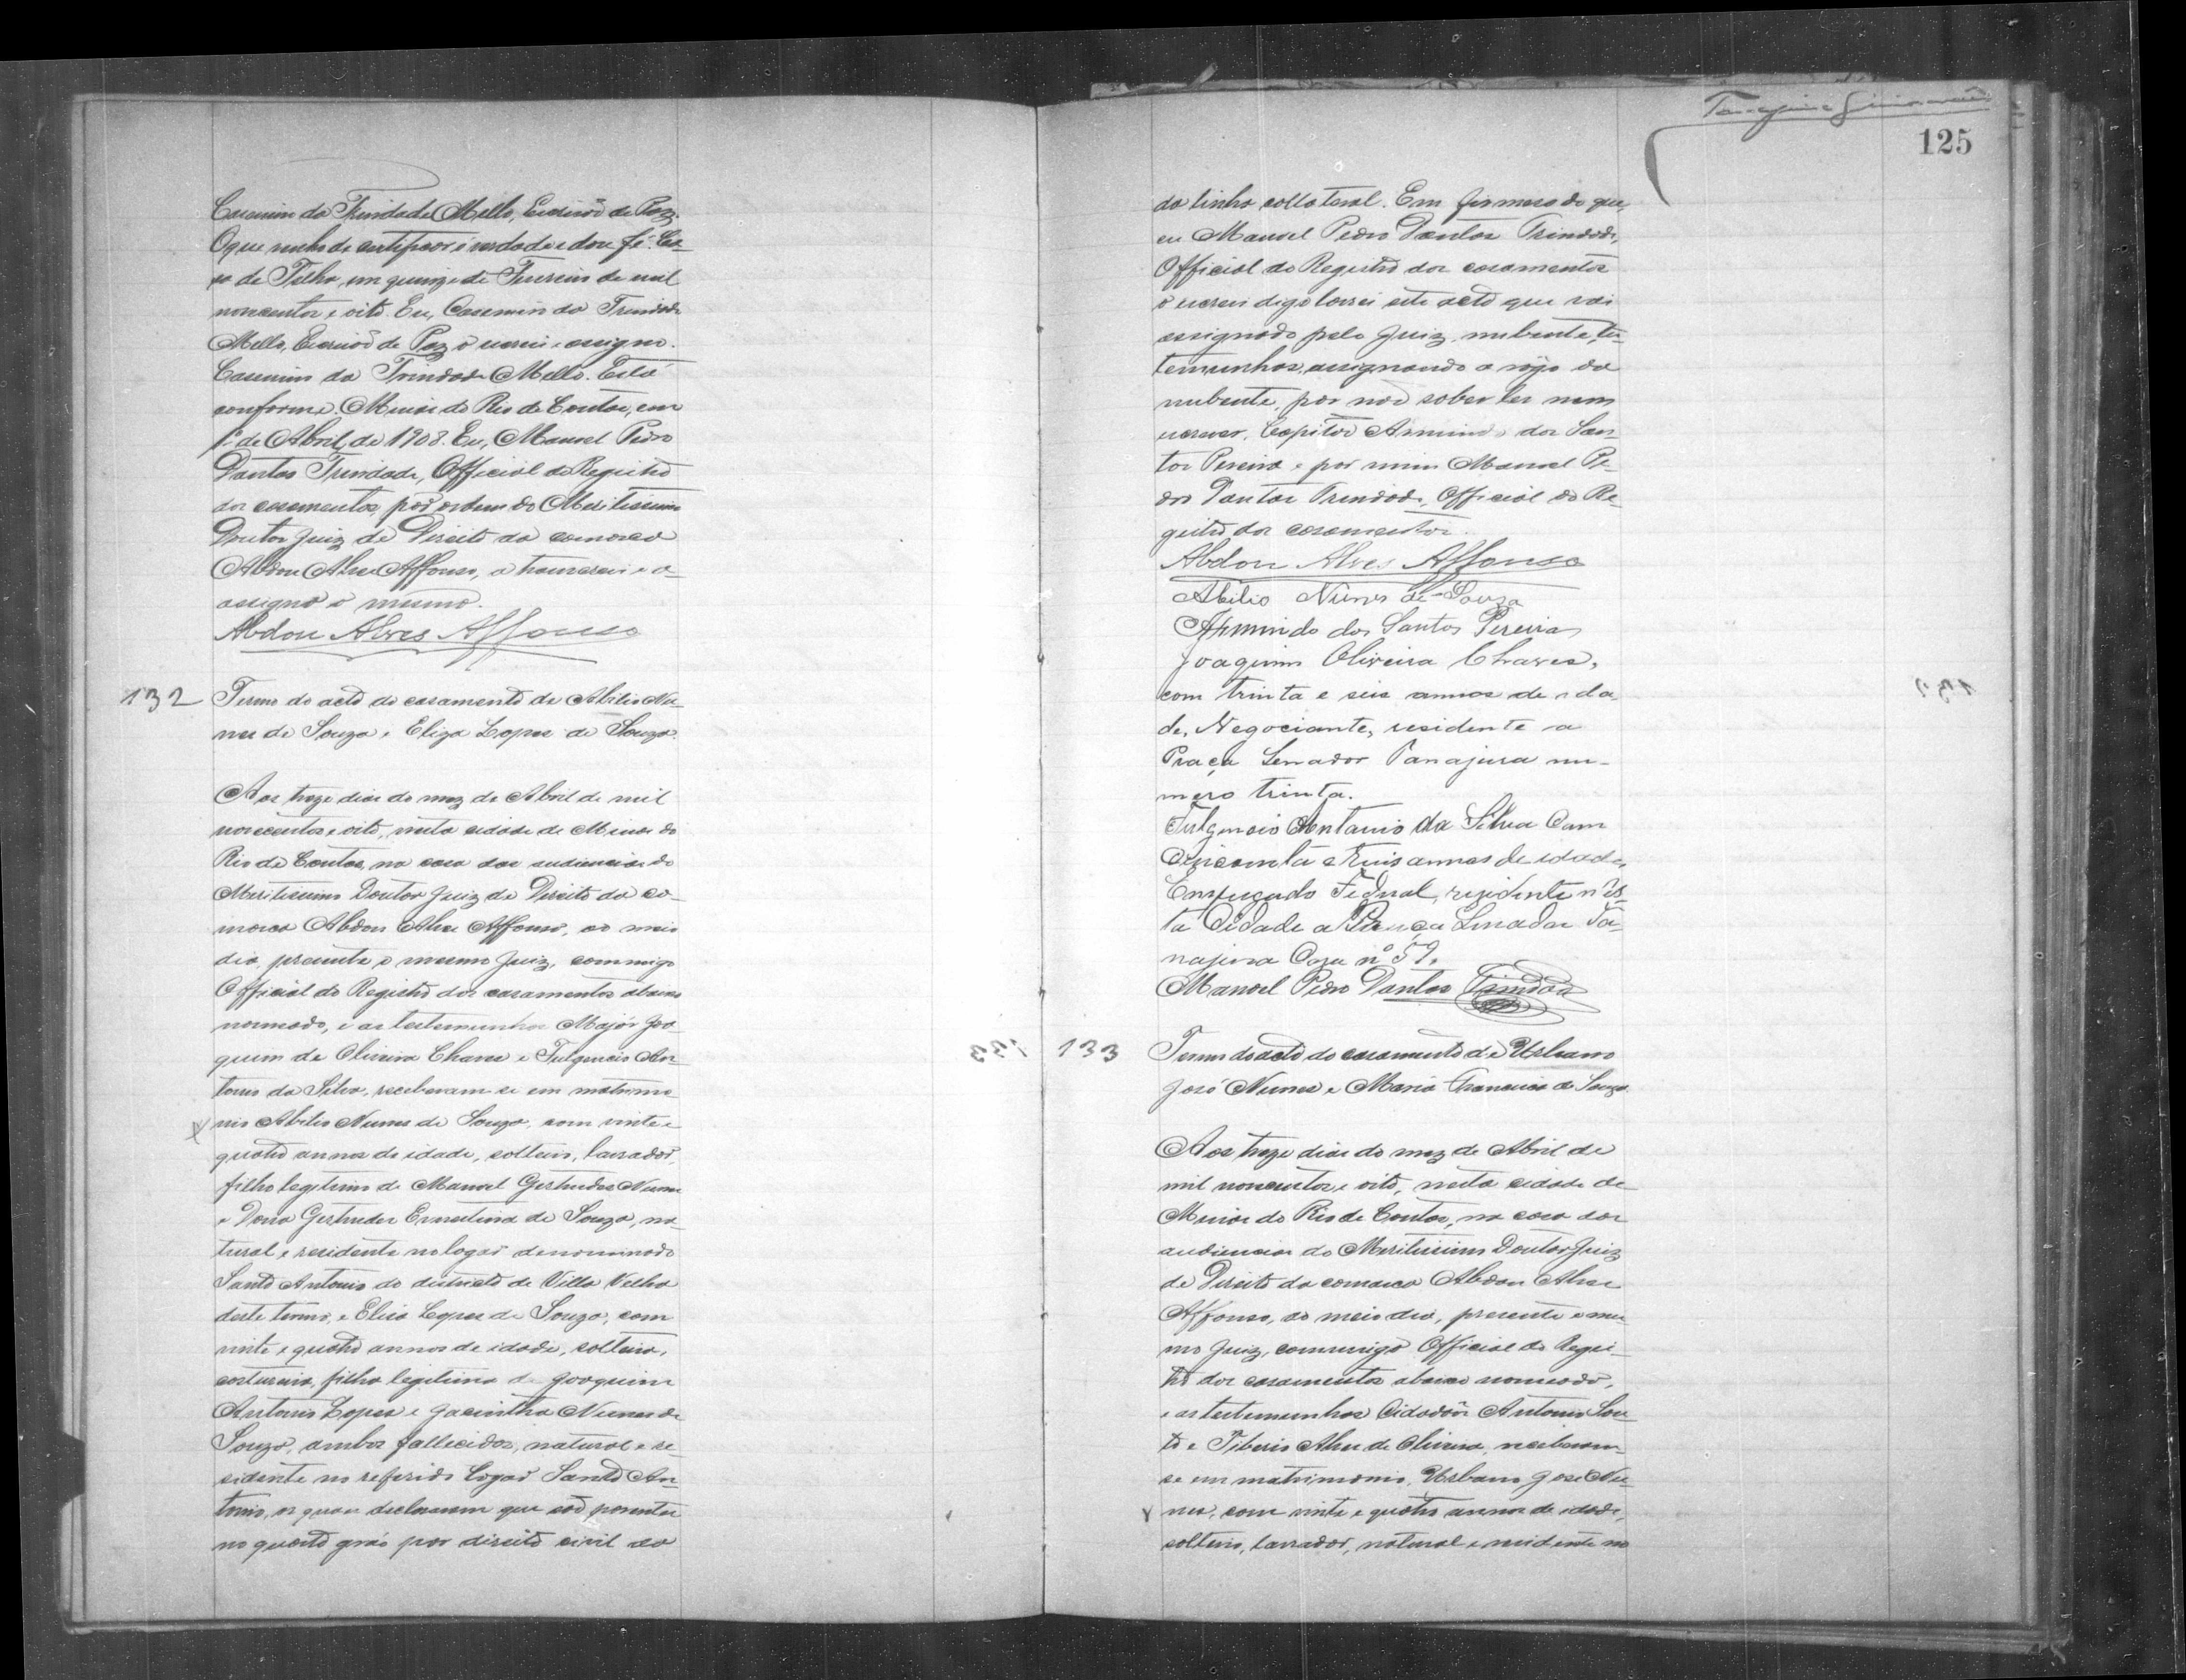 Casemiro da Trindade Mello, Escrivão de Paz.
O que tenho de certificar é verdade e dou fé. Ca-
sa de Telha, em quinze de Fevereiro de mil
novecentos e oito. Eu, Casemiro da Trindade
Mello, Escrivão de Paz o escrevi e assigno.
Casemiro da Trindade Mello. Está
conforme. Minas do Rio de Contas, em
1º de Abril, de 1908. Eu, Manoel Pedro
Dantas Trindade, Official do Registro
dos casamentos, por ordem do Meritissimo
Doutor Juiz de Direito da comarca
Abdon Alves Affonso, o transcrevi e a-
assigna o mesmo.
Abdon Alves Affonso
132
Termo do acto do casamento de Abilio Nu-
nes de Souza e Eliza Lopes de Souza.
Aos treze dias do mez de Abril de mil
novecentos e oito, nesta cidade de Minas do
Rio de Contas, na casa das audiencias do
Meritissimo Doutor Juiz de Direito da co-
marca Abdon Alves Affonso, ao meio
dia, presente o mesmo Juiz, commigo
Official do Registro dos casamentos abaixo
nomeado, e as testemunhas Major Joa-
quim de Oliveira Chaves e Fulgencio An-
tonio da Silva, receberam-se em matrimo-
nio Abilio Nunes de Souza, com vinte e
quatro annos de idade, solteiro, lavrador,
filho legitimo de Manoel Gertrudes Nunes
e Dona Gertrudes Ernestina de Souza, na-
tural e residente no logar denominado
Santo Antonio do districto de Villa Velha
deste termo, e Elisa Lopes de Souza, com
vinte e quatro annos de idade, solteira,
costureira, filha legitima de Joaquim
Antonio Lopes e Jacintha Nunes de
Souza, ambos fallecidos, natural e re-
sidente no referido logar Santo An-
tonio, os quaes declararam que são parentes
no quarto gráo por direito civil da
125
da linha collateral. Em firmesa do que,
eu Manoel Pedro Dantas Trindade,
Official do Registro dos casamentos
o escrevi digo lavrei este acto que vai
assignado pelo Juiz, nubente, tes-
temunhas, assignando a rôgo da
nubente, por não saber ler nem
escrever, Capitão Armindo dos San-
tos Pereira e por mim Manoel Pe-
dro Dantas Trindade, Official do Re-
gistro dos casamentos.
Abdon Alves Affonso
Abilio Nunes de Souza
Armindo dos Santos Pereira
Joaquim Oliveira Chaves,
com trinta e seis annos de ida-
de, Negociante, residente a
Praça Senador Tanajura nu-
mero trinta.
Fulgencio Antonio da Silva Com
Cincoenta e treis annos de idade,
Empregado Federal, residente n'es-
ta Cidade a Praça Senador Ta-
najura Casa nº 59.
Manoel Pedro Dantas Trindade
133
Termo do acto do casamento de Urbano
José Nunes e Maria Francisca de Souza
Aos treze dias do mez de Abril de
mil novecentos e oito, nesta cidade de
Minas do Rio de Contas, na casa das
audiencias do Meritissimo Doutor Juiz
de Direito da comarca Abdon Alves
Affonso, ao meio dia, presente o mes-
mo Juiz, commigo Official do Regis-
tro dos casamentos abaixo nomeado,
e as testemunhas Cidadãos Antonio Sou-
to e Tiberio Alves de Oliveira, receberam-
se em matrimonio, Urbano José Nu-
nes, com vinte e quatro annos de idade,
solteiro, lavrador, natural e residente no